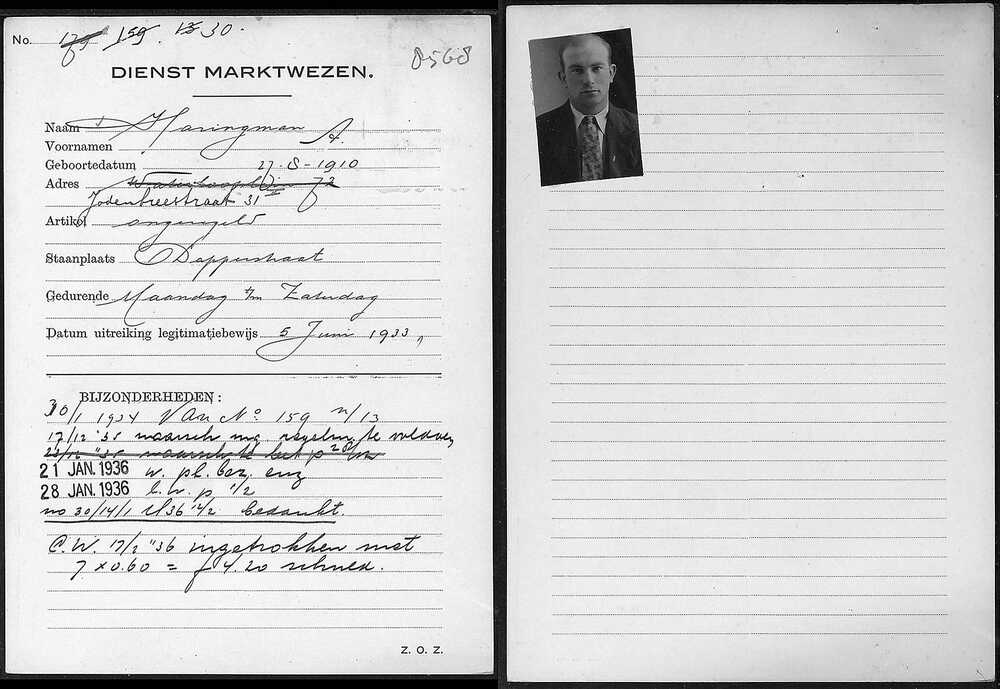 No. 179 159. 13 30.
8568
DIENST MARKTWEZEN.
Naam Haringman A.
Voornamen
Geboortedatum 27-8-1910
Adres Waterlooplein 72
Jodenbreestraat 31 II
Artikel ongeregeld
Staanplaats Dapperstraat
Gedurende Maandag t/m Zaterdag
Datum uitreiking legitimatiebewijs 5 Juni 1933
BIJZONDERHEDEN:
30/1 1934 Van No. 159 n/13
17/12 '35 te voldoen
21 JAN. 1936 w. pl. bez. enz
28 JAN. 1936 b. w. p 1/2
no 30/14/1 1936 12/2 bedankt.
C.W. 17/2 "36 ingetrokken met
7 x 0.60 = f 4.20 schuld.
Z. O. Z.